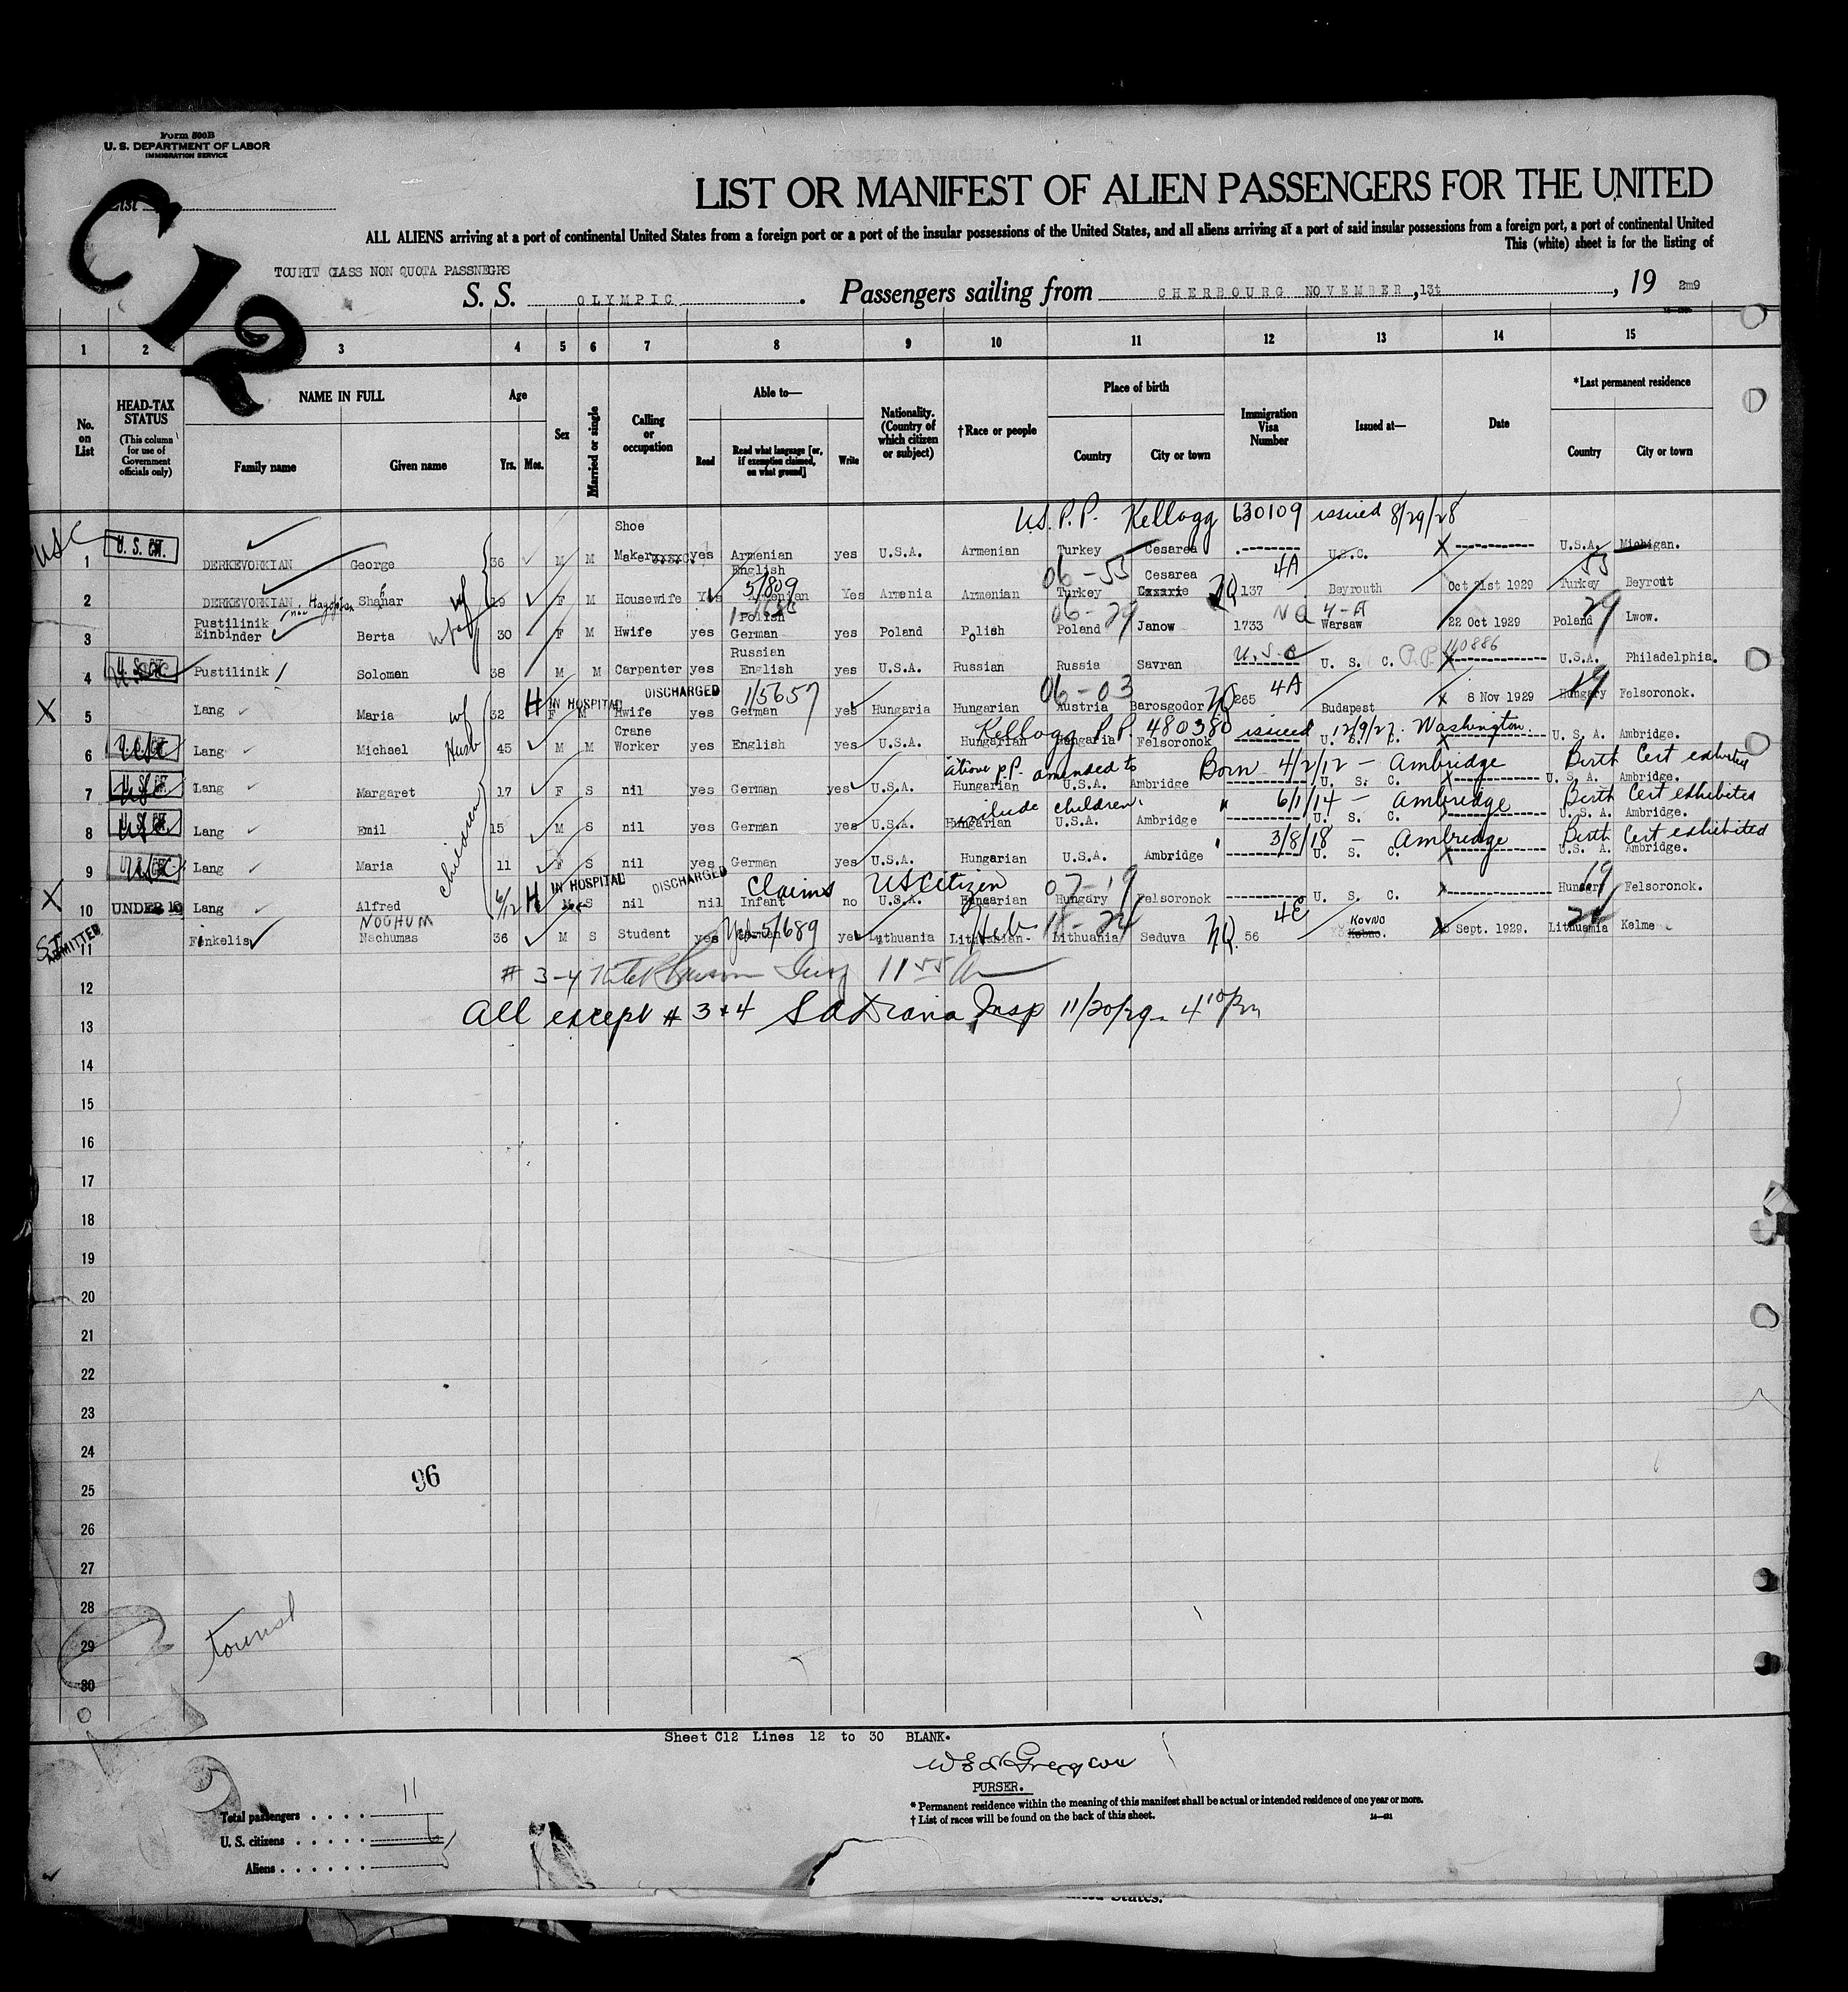 Form 500B
U. S. DEPARTMENT OF LABOR
IMMIGRATION SERVICE
List
C12
LIST OR MANIFEST OF ALIEN PASSENGERS FOR THE UNITED
ALL ALIENS arriving at a port of continental United States from a foreign port or a port of the insular possessions of the United States, and all aliens arriving at a port of said insular possessions from a foreign port, a port of continental United
This (white) sheet is for the listing of
TOURIT CLASS NON QUOTA PASSNEGRS
S. S. OLYMPIC. Passengers sailing from CHERBOURG NOVEMBER, 13t, 19 2m9
1 2 3 4 5 6 7 8 9 10 11 12 13 14 15
No. on List
HEAD-TAX STATUS (This column for use of Government officials only)
NAME IN FULL Family name Given name
Age Yrs. Mos.
Sex
Married or single
Calling or occupation
Able to— Read Read what language [or, if exemption claimed, on what ground] Write
Nationality. (Country of which citizen or subject)
†Race or people
Place of birth Country City or town
Immigration Visa Number
Issued at—
Date
*Last permanent residence Country City or town
U.S. P.P. Kellogg 630109 issued 8/29/28
USC 1 U. S. CIT. DERKEVORKIAN George 36 M M Shoe Maker yes Armenian English yes U.S.A. Armenian Turkey Cesarea U.S.C. U.S.A. Michigan.
06-55 4A 55
2 DERKEVORKIAN Shanar wf 19 F M Housewife Yes 5/809 Armenian Yes Armenia Armenian Turkey Cesarea 137 Beyrouth Oct 21st 1929 Turkey Beyrout
06-29 NQ 4-A 29
3 Pustilinik Einbinder Berta 30 F M Hwife yes Polish German yes Poland Polish Poland Janow 1733 Warsaw 22 Oct 1929 Poland Lwow.
4 U. S. CIT. Pustilinik Soloman 38 M M Carpenter yes Russian English yes U.S.A. Russian Russia Savran U.S.C U. S. C. P.P. 110886 U.S.A. Philadelphia.
X 5 Lang Maria wf 32 H IN HOSPITAL DISCHARGED F M Hwife yes 1/5657 German yes Hungaria Hungarian 06-03 Austria Barosgodor 265 4A Budapest 8 Nov 1929 19 Hungary Felsoronok.
Kellogg P.P. 480380 issued 12/9/27. Washington.
6 USC Lang Michael Husb 45 M M Crane Worker yes English yes U.S.A. Hungarian Hungaria Felsoronok U. S. C. U. S. A. Ambridge.
above p.p. amended to Born 4/2/12 - Ambridge Birth Cert exhibited
7 U. S. CIT. USC Lang Margaret 17 F S nil yes German yes U.S.A. Hungarian U.S.A. Ambridge U. S. C. U. S. A. Ambridge.
include children. " 6/1/14 - Ambridge Birth Cert exhibited
8 U. S. CIT. USC Lang Emil 15 M S nil yes German yes U.S.A. Hungarian U.S.A. Ambridge U. S. C. U. S. A. Ambridge.
" 3/8/18 - Ambridge Birth Cert exhibited
9 USC Lang Maria 11 F S nil yes German yes U.S.A. Hungarian U.S.A. Ambridge U. S. C. U.S. A. Ambridge.
children
X 10 UNDER 16 Lang Alfred 6/12 H IN HOSPITAL DISCHARGED M S nil nil Infant no Claims US Citizen U.S.A. Hungarian 07-19 Hungary Felsoronok U. S. C. 19 Hungary Felsoronok.
ADMITTED 11 Finkelis NOCHUM Nachumas 36 M S Student yes 5/689 yes Lithuania Lithuanian Heb Lithuania Seduva 56 4E KOVNO Kobno. Sept. 1929. Lithuania Kelme
12
All except # 3 & 4 Insp 11/20/29 - 4 10 Pm
13
14
15
16
17
18
19
20
21
22
23
24
96
25
26
27
28
tourist
29
30
Sheet C12 Lines 12 to 30 BLANK.
PURSER.
* Permanent residence within the meaning of this manifest shall be actual or intended residence of one year or more.
† List of races will be found on the back of this sheet.
Total passengers . . . . . 11
U. S. citizens . . . . . 6
Aliens . . . . . . 5